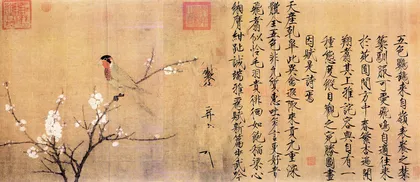 五色鸚鵡來自嶺表養之禁
籞馴服可愛飛鳴自適往來
於苑囿間方中春繁杏遍開
翔翥其上雅詫容與自有一
種態度縱目觀之宛勝圖畫
因賦是詩焉
天產乾皋此異禽遐陬來貢九重深
體全五色非凡質惠吐多言更好音
飛翥似憐毛羽貴徘徊如飽稻粱心
緗膺紺趾誠端雅為賦新篇步武吟
製 并書